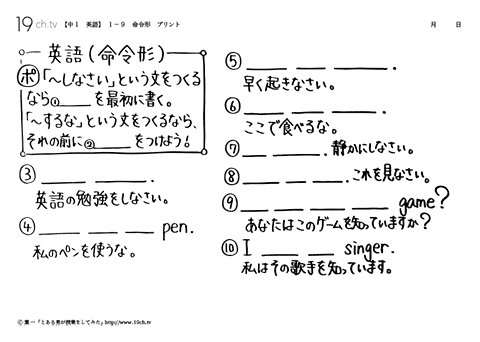 19 ch.tv 【中1 英語】 1-9 命令形 プリント 月 日
英語(命令形)
ポ 「〜しなさい」という文をつくる
なら①____を最初に書く。
「〜するな」という文をつくるなら、
それの前に②____をつけよう!
③ ____ ____.
英語の勉強をしなさい。
④ ____ ____ ____ pen.
私のペンを使うな。
⑤ ____ ____ ____.
早く起きなさい。
⑥ ____ ____ ____.
ここで食べるな。
⑦ ____ ____. 静かにしなさい。
⑧ ____ ____ ____. これを見なさい。
⑨ ____ ____ ____ ____ game?
あなたはこのゲームを知っていますか?
⑩ I ____ ____ singer.
私はその歌手を知っています。
© 葉一「とある男が授業をしてみた」http://www.19ch.tv